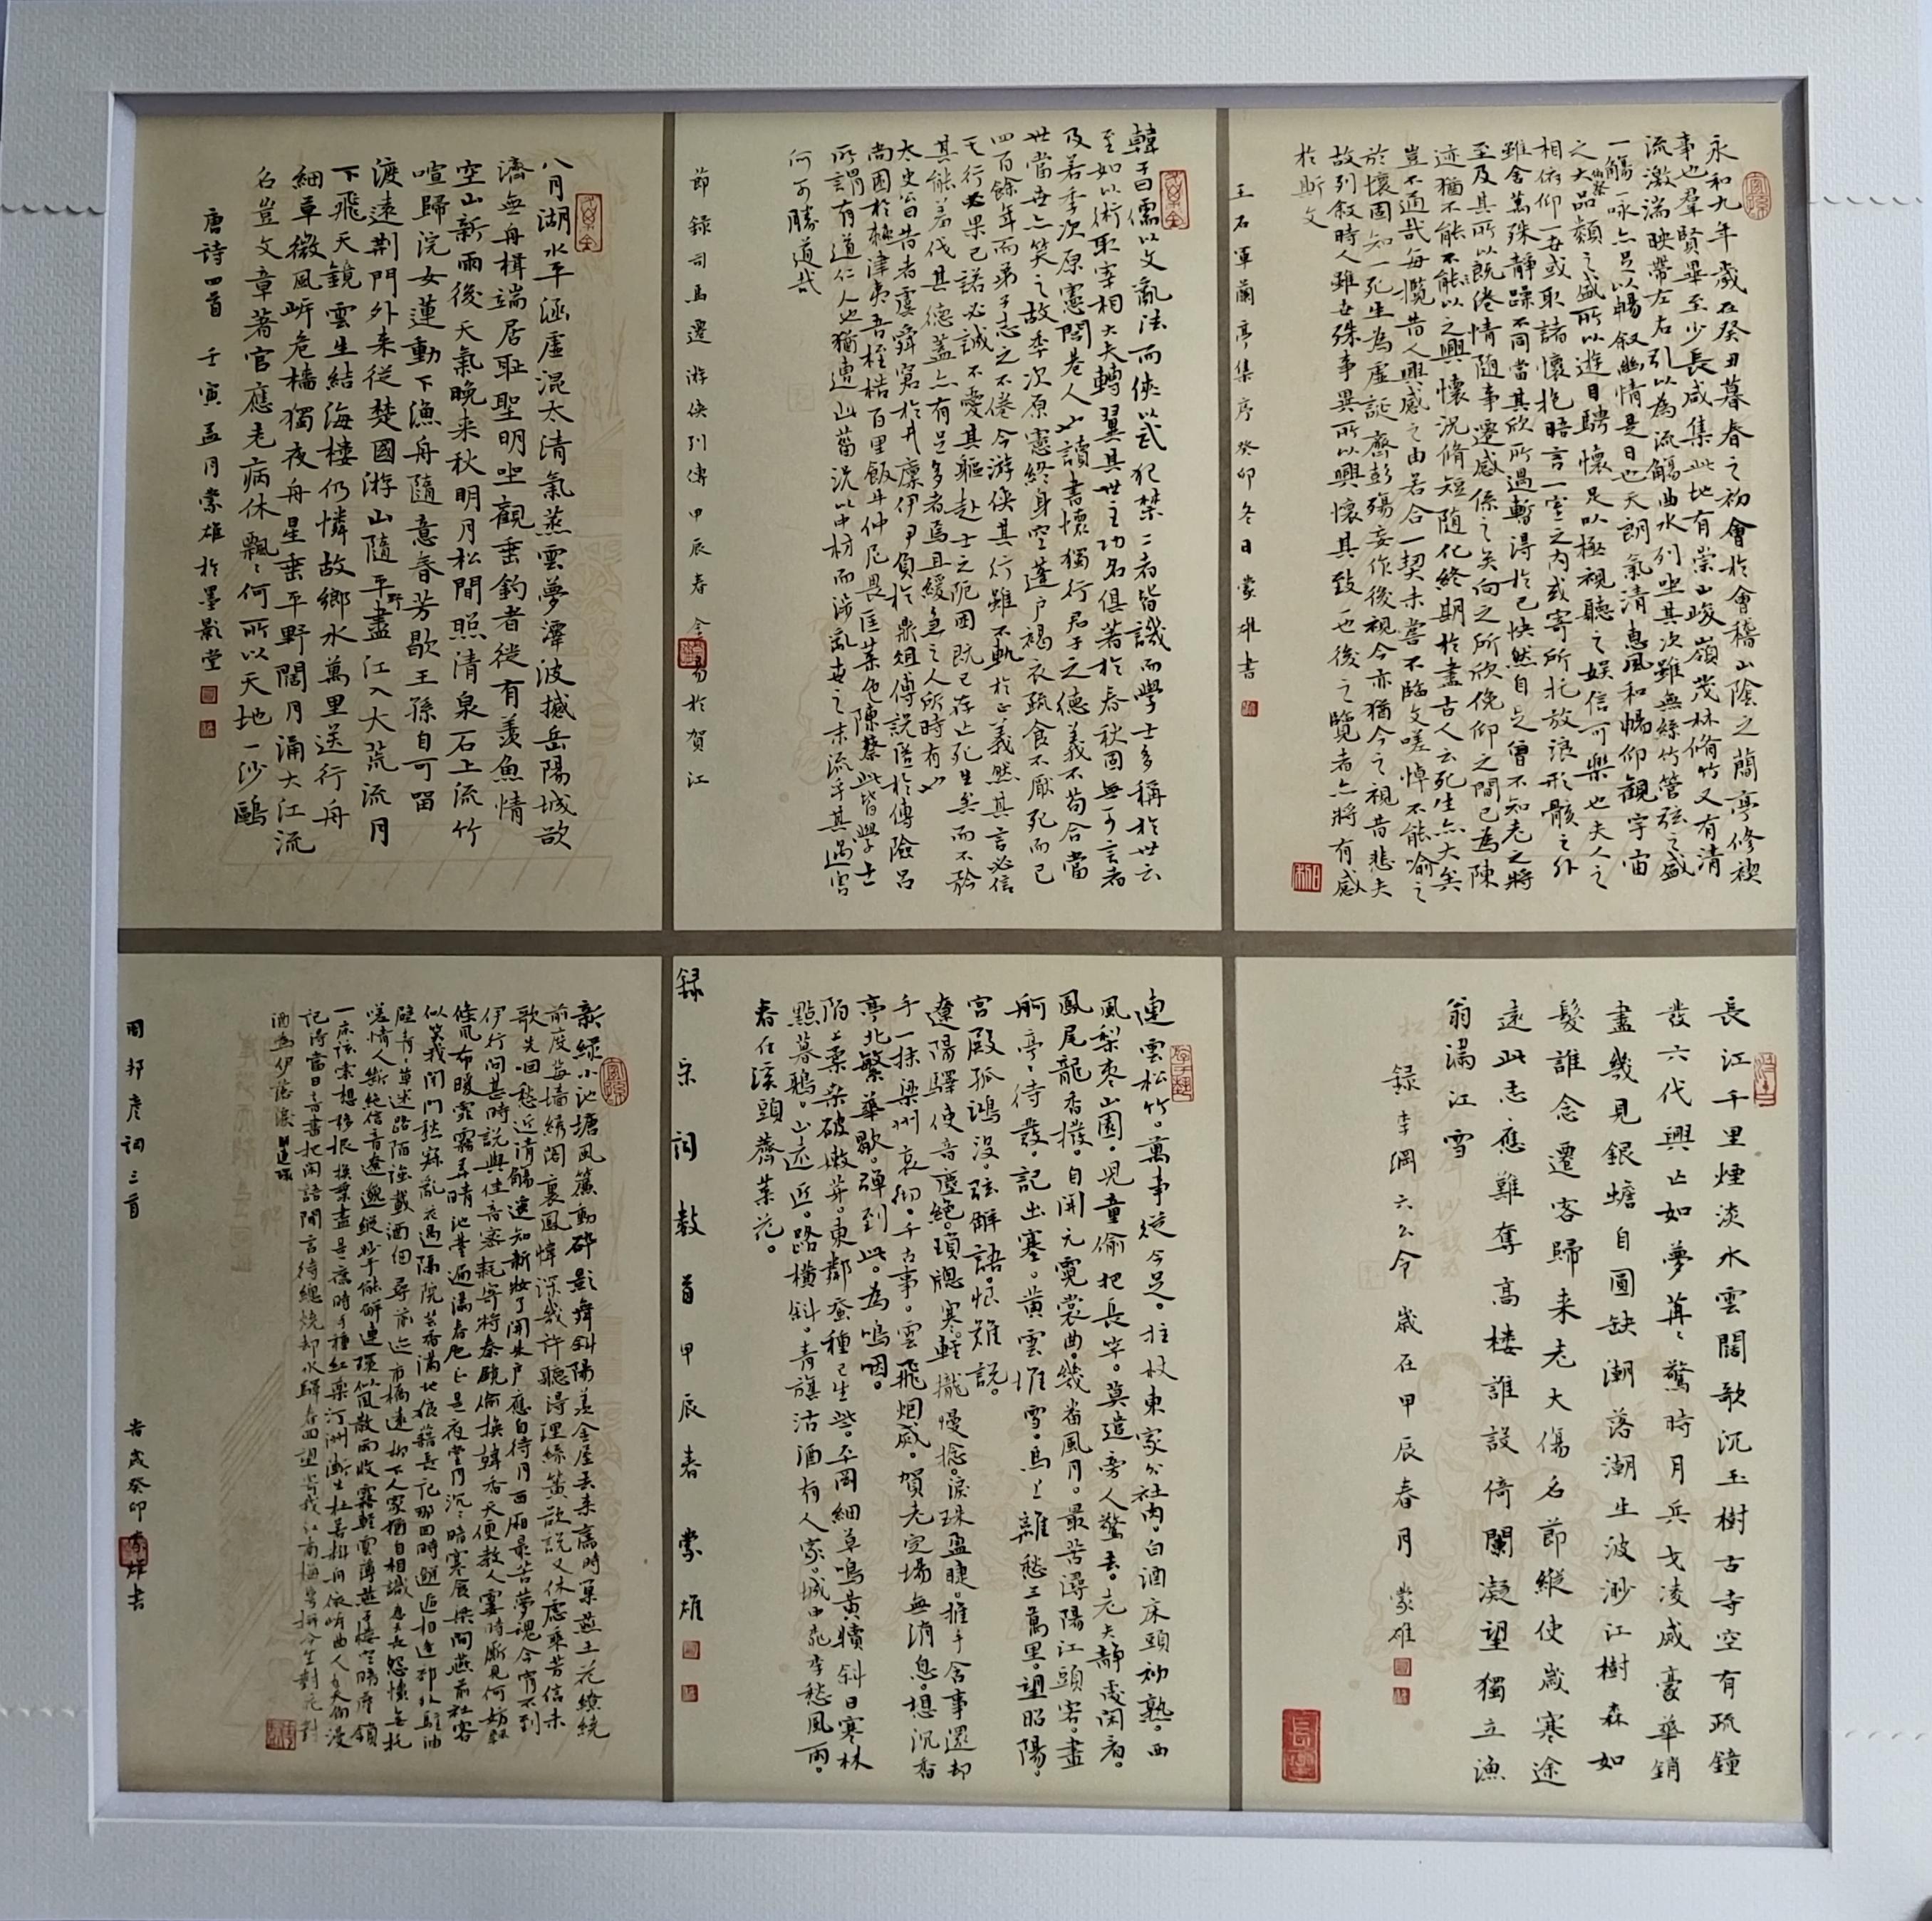 永和九年歲在癸丑暮春之初會於會稽山陰之蘭亭修禊
事也羣賢畢至少長咸集此地有崇山峻嶺茂林脩竹又有清
流激湍映帶左右引以為流觴曲水列坐其次雖無絲竹管弦之盛
一觴一咏亦足以暢叙幽情是日也天朗氣清惠風和暢仰觀宇宙
之大俯察品類之盛所以遊目騁懷足以極視聽之娛信可樂也夫人之
相俯仰一世或取諸懷抱晤言一室之内或寄所托放浪形骸之外
雖舍萬殊靜躁不同當其欣所遇暫得於己快然自足曾不知老之將
至及其所以既倦情隨事遷感係之矣向之所欣俛仰之間已為陳
迹猶不能不能以之興懷況脩短隨化終期於盡古人云死生亦大矣
豈不通哉每攬昔人興感之由若合一契未嘗不臨文嗟悼不能喻之
於懷固知一死生為虛誕齊彭殤妄作後視今亦猶今之視昔悲夫
故列叙時人雖世殊事異所以興懷其致一也後之覽者亦將有感
於斯文
王右軍蘭亭集序癸卯冬日蒙雄書
韓子曰儒以文亂法而俠以武犯禁二者皆譏而學士多稱於世云
至如以術取宰相大夫轉翼其世主功名俱著於春秋固無可言者
及若季次原憲閭巷人也讀書懷獨行君子之德義不苟合當
世當世亦笑之故季次原憲終身空蓬户褐衣疏食不厭死而已
四百餘年而弟子志之不倦今游俠其行雖不軌於正義然其言必信
其行必果已諾必誠不愛其軀赴士之阨困既已存亡死生矣而不矜
其能羞伐其德蓋亦有足多者焉且緩急之人所時有也
太史公曰昔者虞舜窘於井廩伊尹負於鼎俎傅說匿於傅險呂
尚困於棘津夷吾桎梏百里飯牛仲尼畏匡菜色陳蔡此皆學士
所謂有道仁人也猶遭此菑況以中材而涉亂世之末流乎其遇害
何可勝道哉
節錄司馬遷游俠列傳甲辰春
於賀江
八月湖水平涵虛混太清氣蒸雲夢澤波撼岳陽城欲
濟無舟楫端居耻聖明坐觀垂釣者徒有羨魚情
空山新雨後天氣晚来秋明月松間照清泉石上流竹
喧歸浣女蓮動下漁舟隨意春芳歇王孫自可留
渡遠荆門外来從楚國游山隨平野盡江入大荒流月
下飛天鏡雲生結海樓仍憐故鄉水萬里送行舟
細草微風岸危檣獨夜舟星垂平野闊月涌大江流
名豈文章著官應老病休飄飄何所以天地一沙鷗
唐詩四首 壬寅孟月蒙雄於墨影堂
長江千里煙淡水雲闊歌沉玉樹古寺空有疏鐘
發六代興亡如夢苒苒驚時月兵戈凌滅豪華銷
盡幾見銀蟾自圓缺潮落潮生波渺江樹森如
髮誰念遷客歸来老大傷名節縱使歲寒途
遠此志應難奪高楼誰設倚闌凝望獨立漁
翁滿江雪
録李綱六幺令 歲在甲辰春月 蒙雄
連雲松竹。萬事從今足。拄杖東家分社肉。白酒床頭初熟。西
風梨枣山園。兒童偷把長竿。莫遣旁人驚去。老夫靜處閑看。
鳳尾龍香撥。自開元霓裳曲。幾番風月。最苦潯陽江頭客。畫
舸亭亭待發。記出塞。黄雲堆雪。馬上離愁三萬里。望昭陽。
宮殿孤鴻沒。弦解語。恨難説。
遼陽驛使音塵絶。瑣窗寒。輕攏慢撚。淚珠盈睫。推手含事還却
手一抹梁州哀徹。千古事。雲飛烟滅。賀老定場無消息。想沉香
亭北繁華歇。彈到此。為嗚咽。
陌上柔桑破嫩芽。東鄰蚕種已生些。平岡細草鳴黄犢斜日寒林
點暮鴉。山遠近。路横斜。青旗沽酒有人家。城中桃李愁風雨。
春在溪頭薺菜花。
録宋詞數首甲辰春 蒙雄
新緑小池塘風簾動碎影舞斜陽羨金屋去来舊時巢燕土花繚繞
前度莓墻綉閣裏鳳幃深幾許聽得理絲簧欲説又休慮乖芳信未
歌先咽愁近清觴遙知新妝了開朱户應自待月西厢最苦夢魂今宵不到
伊行問甚時説與佳音密耗寄將秦鏡偷換韓香天便教人霎時厮見何妨
條風布暖霏霧弄晴池臺遍滿春色正是夜堂月沉沉暗寒食梁間燕前社客
似笑我閉門愁寂亂花過隔院芸香滿地狼藉長記那回時邂逅相逢郊外駐油
壁青草迷路陌強載酒細尋前迹市橋遠柳下人家猶自相識
嗟情人斷絶信音遼邈縱妙手能解連環似風散雨收霧輕雲薄燕子樓空暗塵鎖
一床弦索想移根換葉盡是舊時手種紅藥汀洲漸生杜若料舟依岸曲人在天角漫
記得當日音書把閑語閑言待總燒却水驛春回望寄我江南梅萼拚今生對花對
酒為伊落淚
周邦彦詞三首
歲癸卯
書